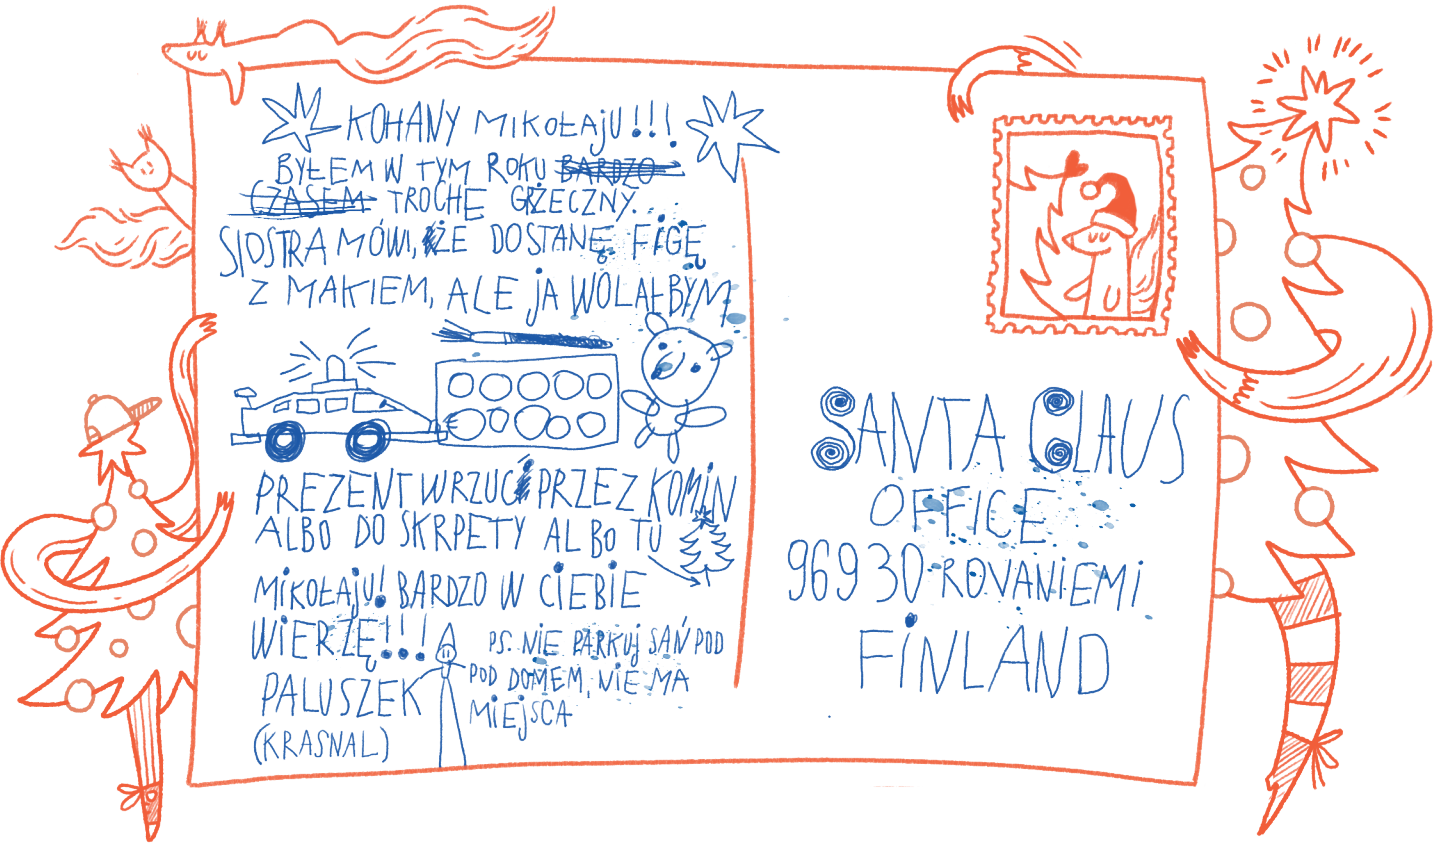 KOHANY MIKOŁAJU!!!
BYŁEM W TYM ROKU BARDZO
CZASEM TROCHE GRZECZNY...
SIOSTRA MÓWI, ŻE DOSTANĘ FIGĘ
Z MAKIEM, ALE JA WOLAŁBYM
PREZENT WRZUĆ PRZEZ KOMIN
ALBO DO SKRPETY ALBO TU
MIKOŁAJU! BARDZO W CIEBIE
WIERZĘ!!!
PALUSZEK
(KRASNAL)
PS. NIE PARKUJ SAŃ POD
POD DOMEM, NIE MA
MIEJSCA
SANTA CLAUS
OFFICE
96930 ROVANIEMI
FINLAND